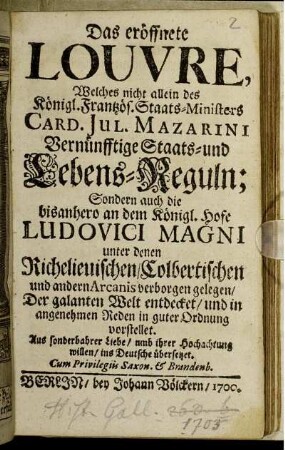 2
Das eröffnete
LOUVRE,
Welches nicht allein des
Königl. Frantzös. Staats-Ministers
CARD. JUL. MAZARINI
Vernünfftige Staats- und
Lebens-Reguln;
Sondern auch die
bisanhero an dem Königl. Hofe
LUDOVICI MAGNI
unter denen
Richelieuischen/Colbertischen
und andern Arcanis verborgen gelegen/
Der galanten Welt entdecket/ und in
angenehmen Reden in guter Ordnung
vorstellet.
Aus sonderbahrer Liebe/ und ihrer Hochachtung
willen/ ins Deutsche übersetzet.
Cum Privilegiis Saxon. & Brandenb.
BERLIN/ bey Johann Völckern/ 1700.
Hist. Gall.
1705